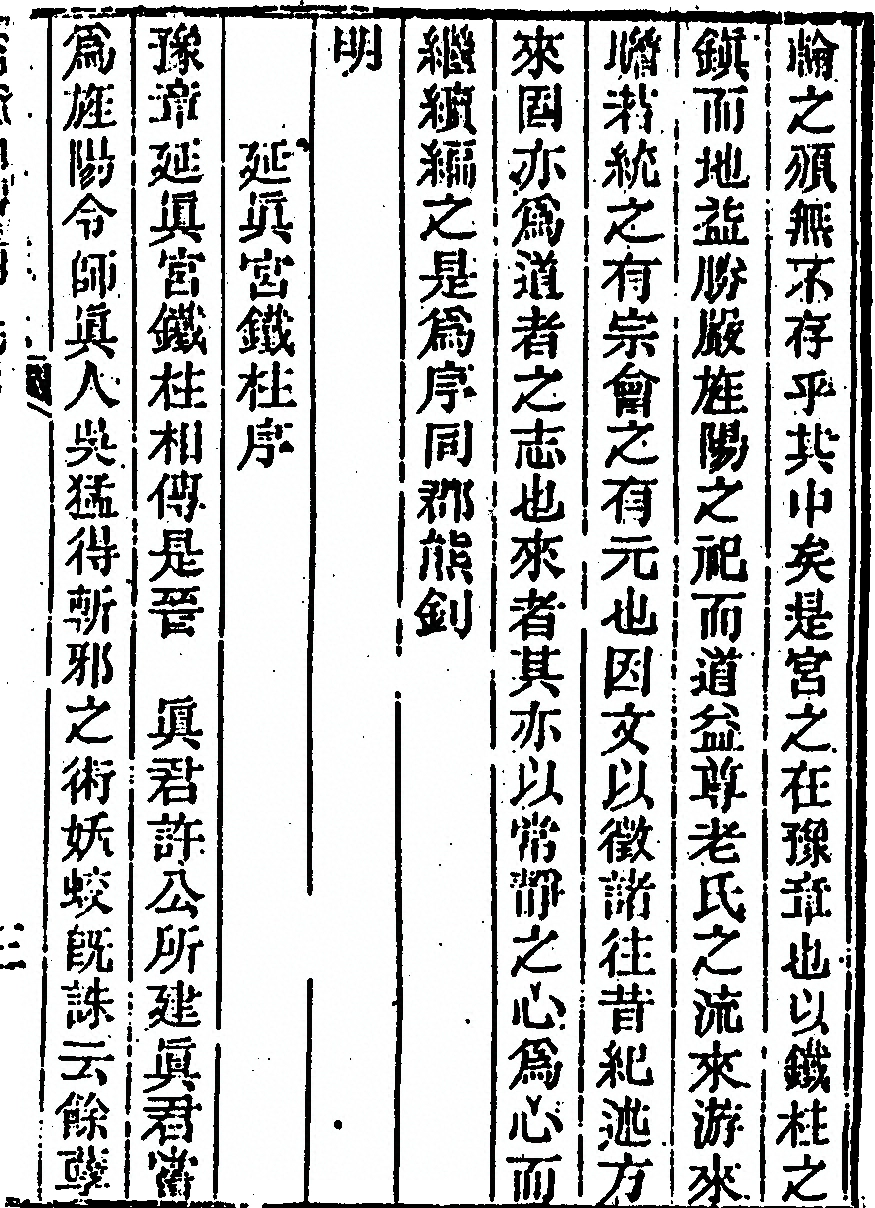 瀹之頒無不存乎其中矣是宮之在豫章也以鐵柱之
鎮而地益勝嚴旌陽之祀而道益尊老氏之流來游來
瞻若統之有宗會之有元也因文以徵諸往昔紀述方
來固亦爲道者之志也來者其亦以常靜之心爲心而
繼續編之是爲序同郡熊釗
明
延眞宮鐵柱序
豫章延眞宮鐵柱相傳是晉　眞君許公所建眞君嘗
爲旌陽令師眞人吳猛得斬邪之術妖蛟旣誅云餘孽
三